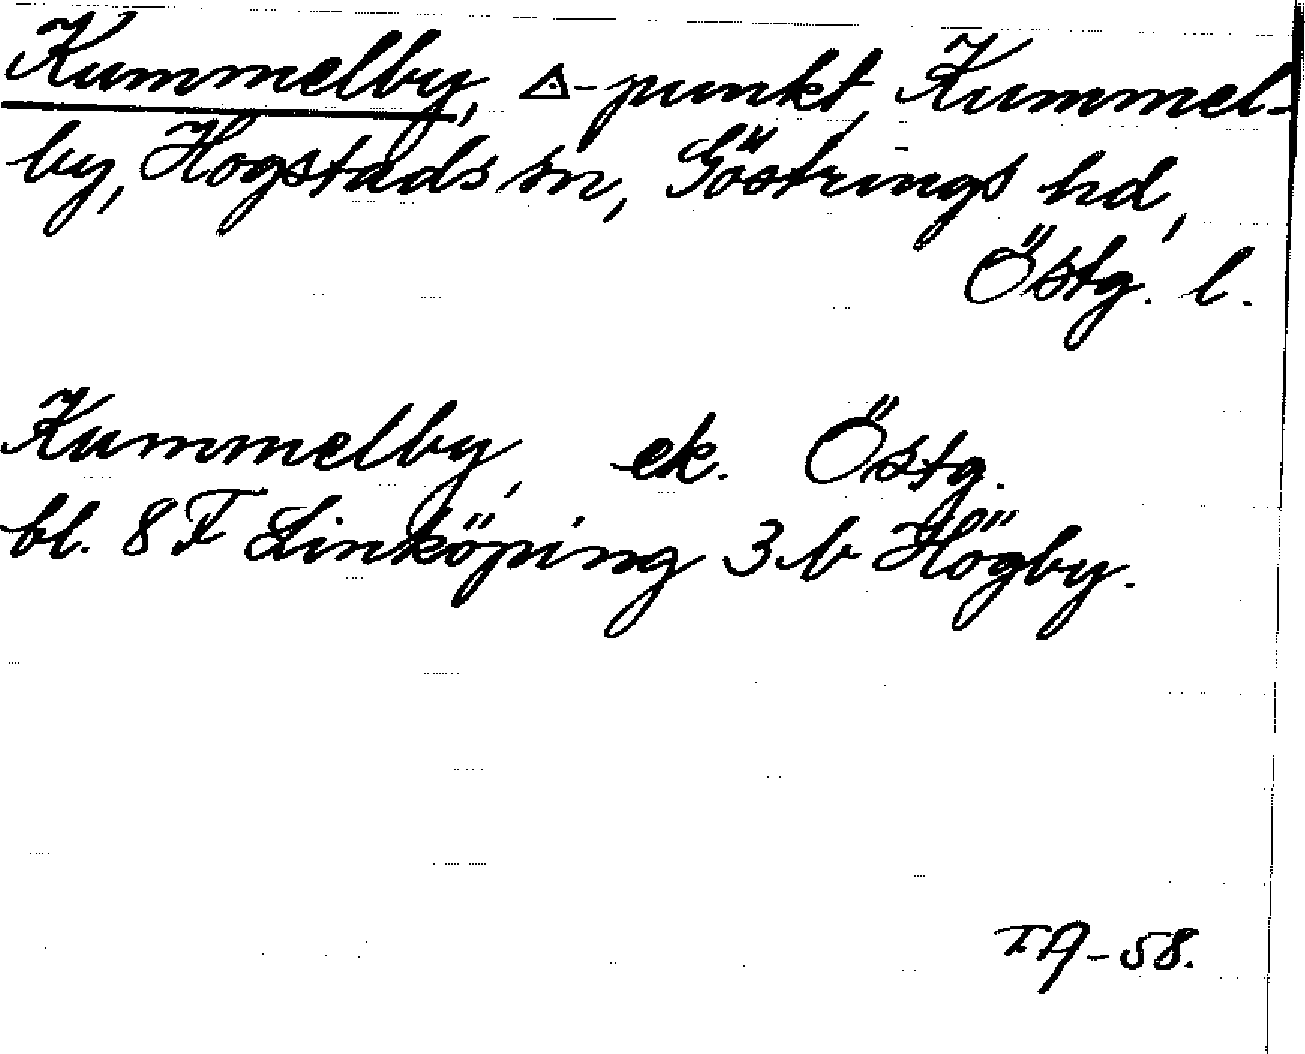 Kummelby, △-punkt, Kummel-
by, Hogstads sn, Göstrings hd,
Östg. l.
Kummelby, ek. Östg.
bl. 8 F Linköping 3 b Högby.
TA-58.